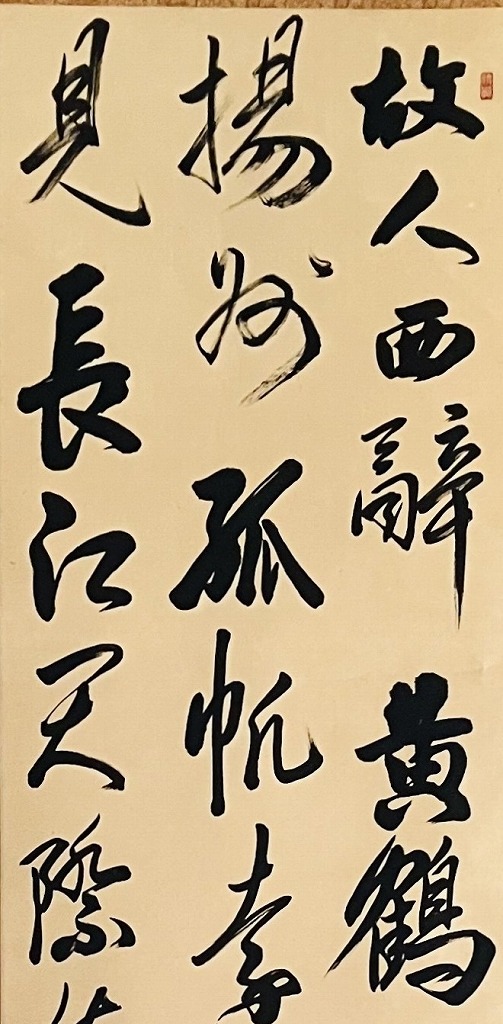 故人西辭黄鶴
揚州孤帆遠
見長江天際